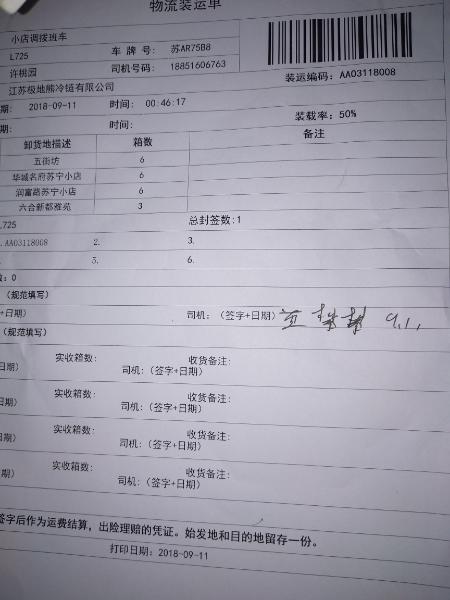 物流装运单
小店调拨班车
L725 车 牌 号: 苏AR75B8
许桃园 司机号码: 18851606763
江苏极地熊冷链有限公司 装运编码: AA03118008
期: 2018-09-11 时间: 00:46:17
期: 时间: 装载率: 50%
卸货地描述 箱数 备注
五街坊 6
华城名府苏宁小店 6
润富路苏宁小店 6
六合新都雅苑 3
L725 总封签数:1
.AA03118008 2. 3.
5. 6.
数: 0
(规范填写)
+日期) 司机: (签字+日期)
(规范填写)
实收箱数: 收货备注:
日期) 司机: (签字+日期)
实收箱数: 收货备注:
日期) 司机: (签字+日期)
实收箱数: 收货备注:
日期) 司机: (签字+日期)
实收箱数: 收货备注:
期) 司机: (签字+日期)
签字后作为运费结算, 出险理赔的凭证。始发地和目的地留存一份。
打印日期: 2018-09-11